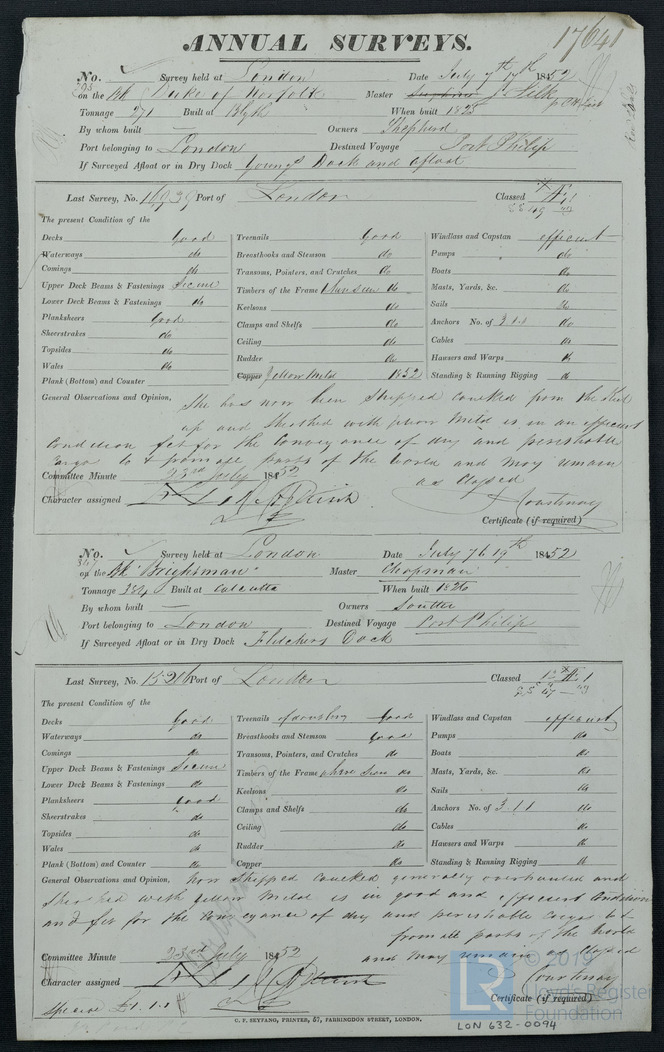 17641
ANNUAL SURVEYS.
No. Survey held at London Date July 7th 17th 1852
on the Bk Duke of Norfolk Master J. Silk
Tonnage 271 Built at Blyth When built 1828
By whom built — Owners Shepherd
Port belonging to London Destined Voyage Port Philip
If Surveyed Afloat or in Dry Dock Youngs Dock and afloat
Last Survey, No. 16939 Port of London Classed Æ 1
The present Condition of the
Decks Good Treenails Good Windlass and Capstan efficient
Waterways do Breasthooks and Stemson do Pumps do
Comings do Transoms, Pointers, and Crutches do Boats do
Upper Deck Beams & Fastenings Secure Timbers of the Frame where seen do Masts, Yards, &c. do
Lower Deck Beams & Fastenings do Keelsons do Sails do
Planksheers Good Clamps and Shelfs do Anchors No. of 3.1.1 do
Sheerstrakes do Ceiling do Cables do
Topsides do Rudder do Hawsers and Warps do
Wales do Copper Yellow Metl 1852 Standing & Running Rigging do
Plank (Bottom) and Counter
General Observations and Opinion, She has now been stripped caulked from the Keel
up and sheathed with yellow Metl is in an efficient
Condition fit for the Conveyance of dry and perishable
Cargo to & from all parts of the World and May remain
as Classed
Committee Minute 23rd July 1852
Character assigned
Courtenay
Certificate (if required)
No. Survey held at London Date July 7 to 19th 1852
on the Bk "Brightman" Master Chapman
Tonnage 384 Built at Calcutta When built 1826
By whom built — Owners Soutter
Port belonging to London Destined Voyage Port Philip
If Surveyed Afloat or in Dry Dock Fletchers Dock
Last Survey, No. 15206 Port of London Classed Æ 1
The present Condition of the
Decks Good Treenails of doubling Good Windlass and Capstan efficient
Waterways do Breasthooks and Stemson Good Pumps do
Comings do Transoms, Pointers, and Crutches do Boats do
Upper Deck Beams & Fastenings Secure Timbers of the Frame where seen do Masts, Yards, &c. do
Lower Deck Beams & Fastenings do Keelsons do Sails do
Planksheers Good Clamps and Shelfs do Anchors No. of 3.1.1 do
Sheerstrakes do Ceiling do Cables do
Topsides do Rudder do Hawsers and Warps do
Wales do Copper do Standing & Running Rigging do
Plank (Bottom) and Counter do
General Observations and Opinion, Now Stripped Caulked generally overhauled and
Sheathed with yellow Metl is in good and efficient Condition
and fit for the Conveyance of dry and perishable Cargo to &
from all parts of the World
and May remain as Classed
Committee Minute 23rd July 1852
Character assigned
Courtenay
Special £1.1.
Certificate (if required)
C. F. SEYFANG, PRINTER, 57, FARRINGDON STREET, LONDON.
LR © 2019
Lloyd's Register
Foundation
LON 632-0094